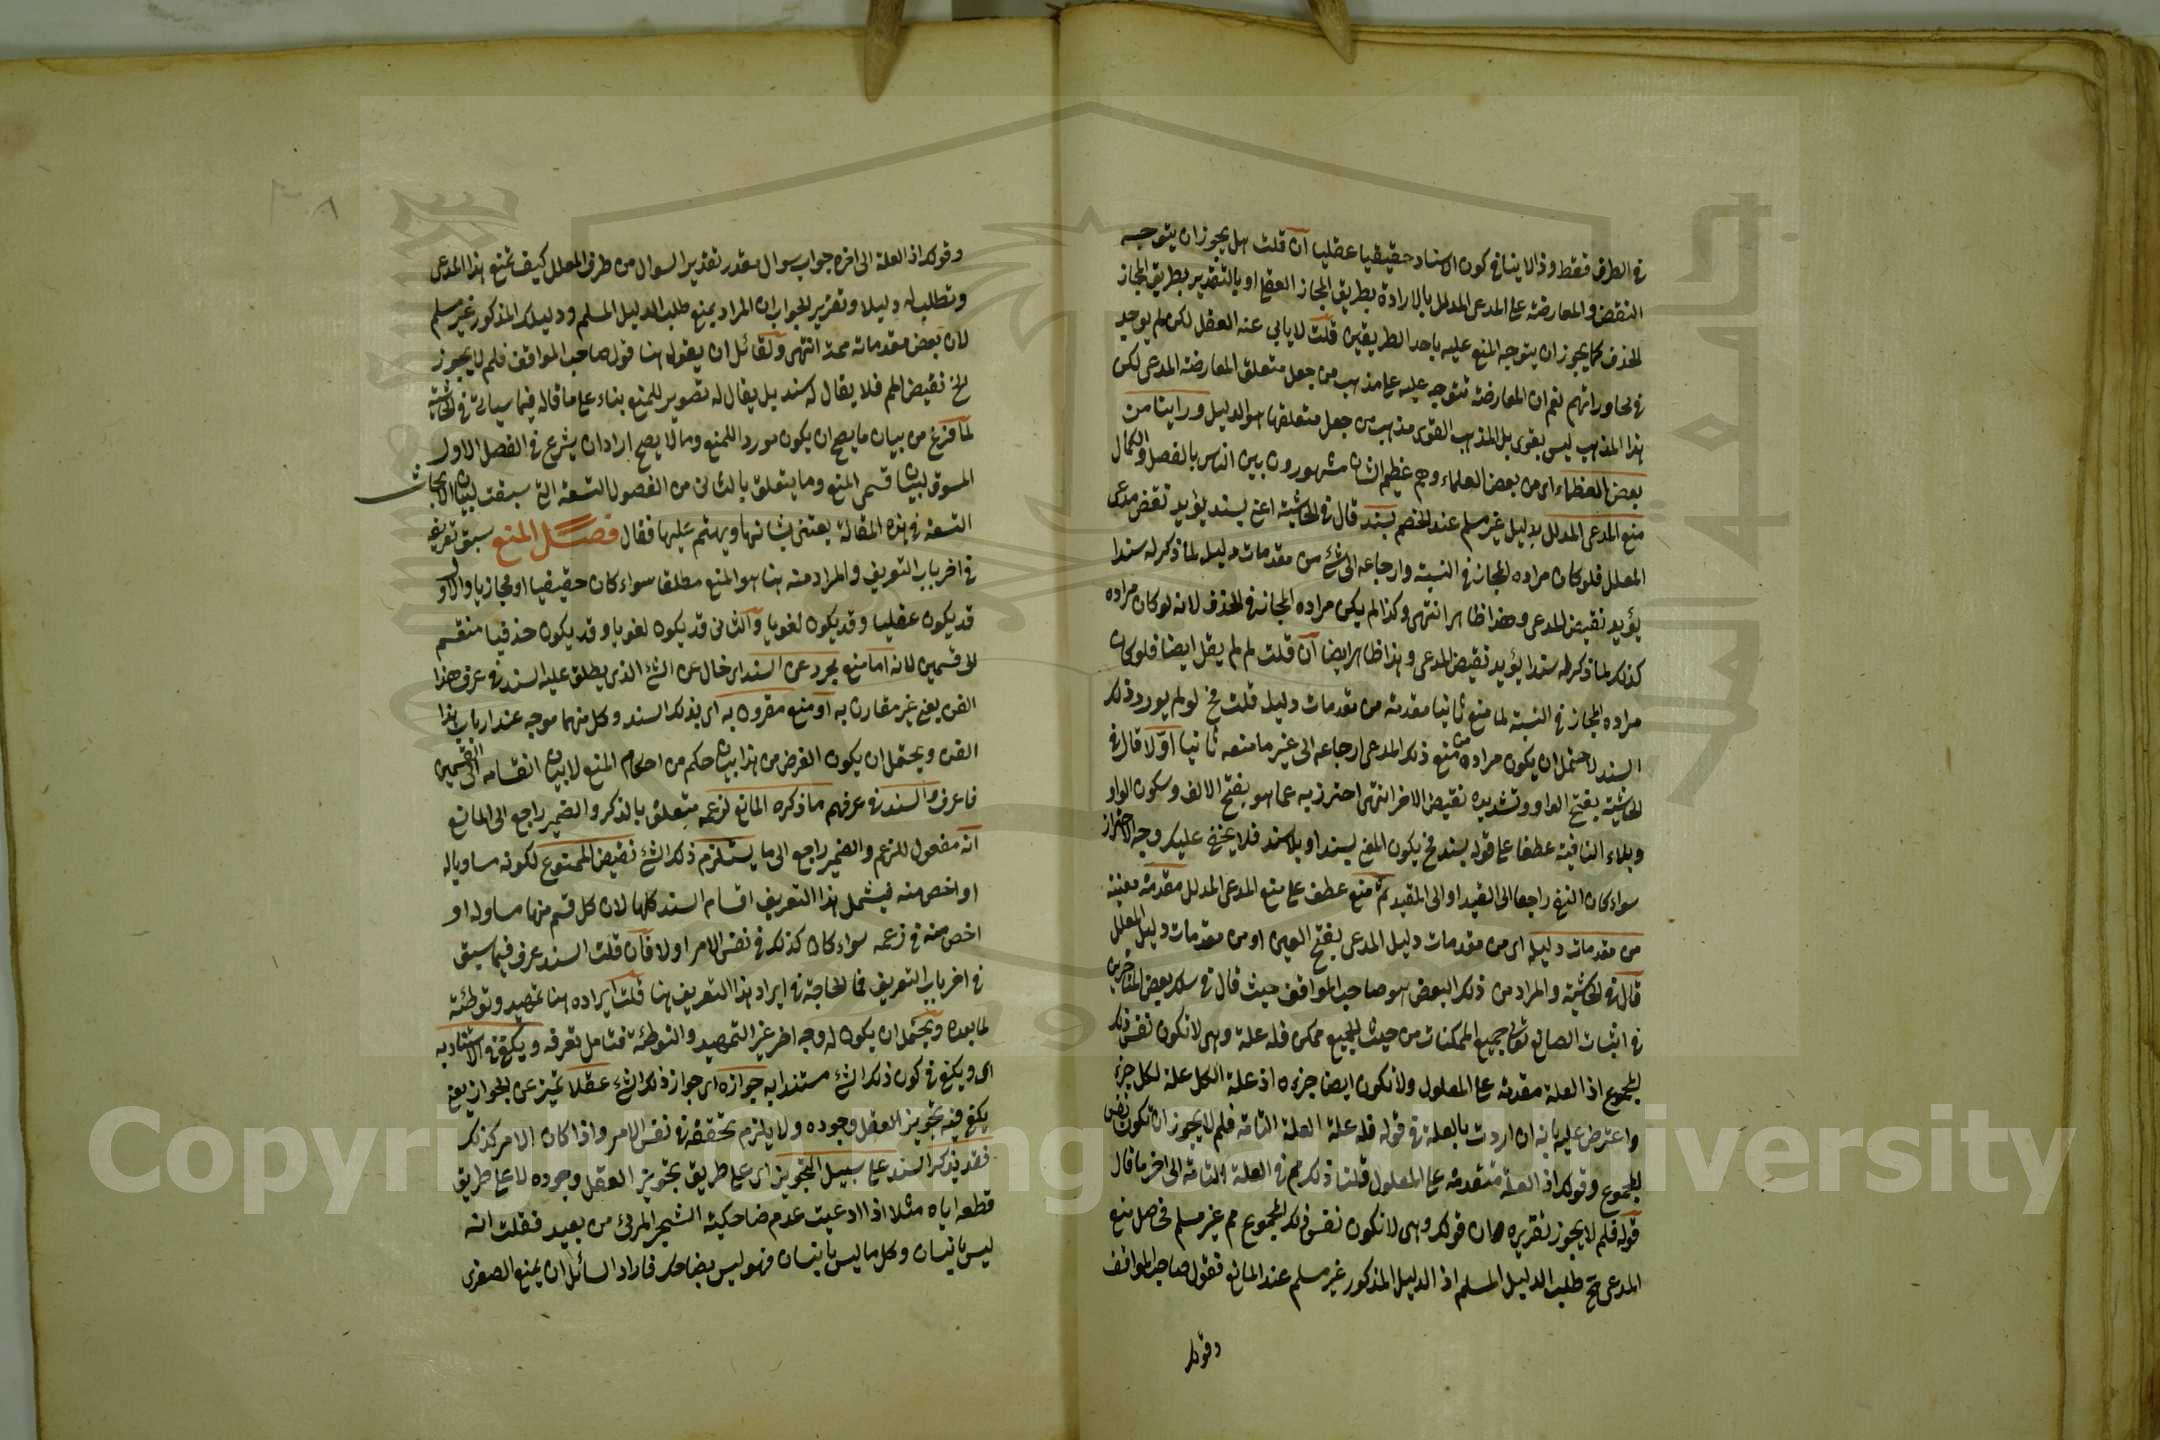 في الطرف فقط وذا لا ينافي كون الاسناد حقيقيا عقليا آن قلت هل يجوز ان يتوجه
النقض والمعارضة على المدعى المدلل بالارادة بطريق المجاز العقلي او بالتقدير بطريق المجاز
الحذف كما يجوز ان يتوجه المنع عليه باحد الطريقين قلت لا يابى عنه العقل لكن لم يوجد
في محاوراتهم نعم ان المعارضة تتوجه عليه على مذهب من جعل متعلق المعارضة المدعى لكن
هذا المذهب ليس بقوى بل المذهب القوى مذهب من جعل متعلقها هو الدليل ورايتا من
بعض العظماء اى من بعض العلماء وهم عظيم الشان مشهورون بين الناس بالفضل والكمال
منع المدعى المدلل بدليل غير مسلم عند الخصم بسند قال في الحاشية اعنى بسند يؤيد نقض مدعى
المعلل فلو كان مراده المجاز في النسبة وارجاعه الى شئ من مقدمات دليله لما ذكر له سندا
يؤيد نقيض المدعى وهذا ظاهر انتهى وكذا لم يكن مراده المجاز في الحذف لانه لو كان مراده
كذلك لما ذكر له سندا يؤيد نقيض المدعى وهذا ظاهر ايضا آن قلت لم لم يقل ايضا فلو كان
مراده المجاز في النسبة لما منع ثانيا مقدمة من مقدمات دليله قلت مخ لو لم يورد ذلك
السند لاحتمل ان يكون مراده من منع ذلك المدعى ارجاعه الى غير ما منعه ثانيا اوّلا قال في
الحاشية بفتح الواو وتشديده نقيض الاخر انتهى احترز به عما هو بفتح الالف وسكون الواو
وبلاء النافية عطفا على قوله بسند فح يكون المنع بسند او بلا سند فلا يخفى عليك وجه الاحتراز
سواء كان النفي راجعا الى القيد او الى المقيد ثمّ منع عطف على منع المدعى المدلل مقدمة معينة
من مقدمات دليله اى من مقدمات دليل المدعى بفتح العين او من مقدمات دليل المعلل
قال في الحاشية والمراد من ذلك البعض هو صاحب المواقف حيث قال في مسلك بعض المتأخرين
في اثبات الصانع تعالى جميع الممكنات من حيث الجميع ممكن فله علة وهى لا تكون نفس ذلك
المجموع اذ العلة مقدمة على المعلول ولا تكون ايضا جزءه اذ علة الكل علة لكل جزء
واعترض عليه بانه ان اردت بالعلة في قوله فله علة العلة التامة فلم لا يجوز ان تكون نفس
المجموع وقولك اذ العلة متقدمة على المعلول قلنا ذلك مم في العلة التامة الى اخر ما قال
قوله فلم لا يجوز تقريره هان قولك وهى لا تكون نفس ذلك المجموع مم غير مسلم فحاصل منع
المدعى تح طلب الدليل المسلم اذ الدليل المذكور غير مسلم عند المانع فقول صاحب المواقف
وقولك
وقولك اذ العلة الى اخره جواب سوال مقدر تقدير السوال من طرف المعلل كيف تمنع هذا المدعى
وتطلب له دليلا وتقرير الجواب ان المراد بمنع طلب الدليل المسلم ودليلك المذكور غير مسلم
لان بعض مقدماته مم انتهى ولقائل ان يقول هنا قول صاحب المواقف فلم لا يجوز
الخ نقيض المم فلا يقال له سند بل يقال له تصوير للمنع بناء على ما قاله فيما سياتى في الحاشية
لما فرغ من بيان ما يصح ان يكون موردا للمنع وما لا يصح اراد ان يشرع في الفصل الاول
المسوق لبيان قسمى المنع وما يتعلق بالثانى من الفصول التسعة التى سبقت لبيان الابحاث
التسعة في هذه المقالة يعتنى بشانها ويهتم عليها فقال فصل المنع سبق تعريفه
في اخر باب التعريف والمراد منه هنا هو المنع مطلقا سواء كان حقيقيا او مجازيا والاول
قد يكون عقليا وقد يكون لغويا والثانى قد يكون لغويا وقد يكون حذفيا منقسم
الى قسمين لانه اما منع مجرد عن السند اى خال عن الشئ الذى يطلق عليه السند في عرف هذا
الفن يعنى غير مقارن به او منع مقرون به اى بذلك السند وكل منهما موجه عند ارباب هذا
الفن ويحتمل ان يكون الغرض من هذا بيان حكم من احكام المنع لا بيان انقسامه الى القسمين
فاعرف والسند في عرفهم ما ذكره المانع لزعمه متعلق بالذكر والضمير راجع الى المانع
انه مفعول للزعم والضمير راجع الى ما يستلزم ذلك الشئ نقيض الممنوع لكونه مساويا له
او اخص منه فيشمل هذا التعريف اقسام السند كلها لان كل قسم منها مساو له او
اخص منه في زعمه سواء كان كذلك في نفس الامر او لا فآن قلت السند عرف فيما سبق
في اخر باب التعريف فما الحاجة في ايراد هذا التعريف هنا قلت ايراده هنا تمهيد وتوطئة
لما بعده ويحتمل ان يكون له وجه اخر غير التمهيد والتوطئة فتامل تعرفه ويكفى في الاستناد به
اى ويكفى في كون ذلك الشئ مستندا به جوازه اى جواز ذلك الشئ عقلا تميز عن الجواز يعنى
يكفى فيه تجويز العقل وجوده ولا يلزم تحققه في نفس الامر واذا كان الامر كذلك
فقد يذكر السند على سبيل التجويز اى على طريق تجويز العقل وجوده لا على طريق
قطعه اياه مثلا اذا ادعيت عدم ضاحكية الشبح المرئى من بعيد فقلت انه
ليس بانسان وكل ما ليس بانسان فهو ليس بضاحك فاراد السائل ان يمنع الصغرى
Copyright © King Saud University